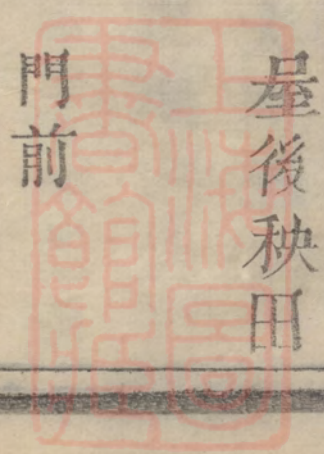 屋後秧田
門前
上海圖
書館藏